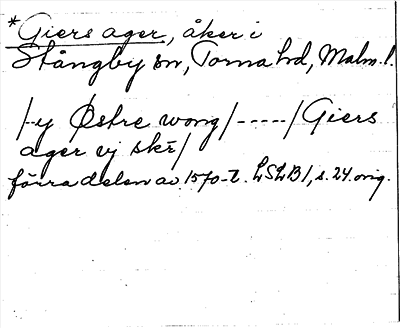 *Giers ager, åker i
Stångby sn, Torna hd, Malm.l.
/-y Østre wong/-----/Giers
ager vj skr/
förra delen av 1570-t. LSLB1, s. 24. orig.